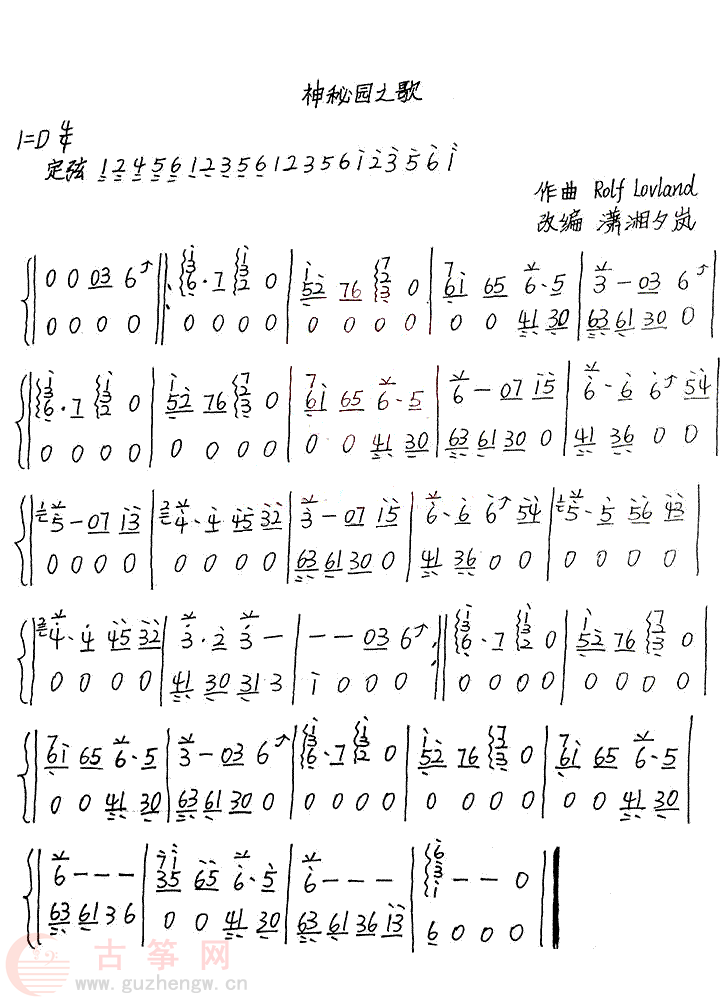 神秘园之歌
1=D 4/4
定弦 1 2 4 5 6 1 2 3 5 6 1 2 3 5 6 1 2 3 5 6 1
作曲 Rolf Lovland
改编 潇湘夕岚
0 0 03 6 6·7 0 52 76 0 61 65 6·5 3 - 03 6
0 0 0 0 0 0 0 0 0 0 0 0 0 0 41 30 63 61 30 0
6·7 0 52 76 0 61 65 6·5 6 - 07 15 6·6 6 54
0 0 0 0 0 0 0 0 0 0 41 30 63 61 30 0 41 36 0 0
5 - 07 13 4·4 45 32 3 - 07 15 6·6 6 54 5·5 56 43
0 0 0 0 0 0 0 0 63 61 30 0 41 36 0 0 0 0 0 0
4·4 45 32 3·2 3 - - - 03 6 6·7 0 52 76 0
0 0 0 0 41 30 31·3 1 0 0 0 0 0 0 0 0 0 0 0
61 65 6·5 3 - 03 6 6·7 0 52 76 0 61 65 6·5
0 0 41 30 63 61 30 0 0 0 0 0 0 0 0 0 0 0 41 30
6 - - - 35 65 6·5 6 - - - - - 0
63 61 3 6 0 0 41 30 63 61 36 13 6 0 0 0
古筝网
www.guzhengw.cn